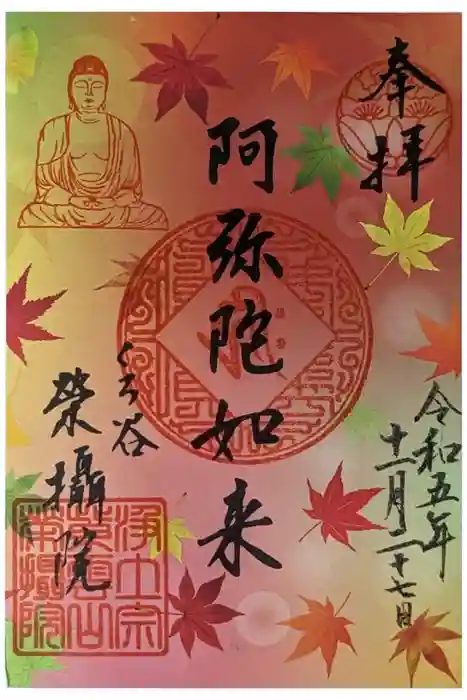 奉拝
令和五年
十一月二十七日
阿弥陀如来
くろ谷
榮攝院
浄土宗
紫雲山
榮摂院